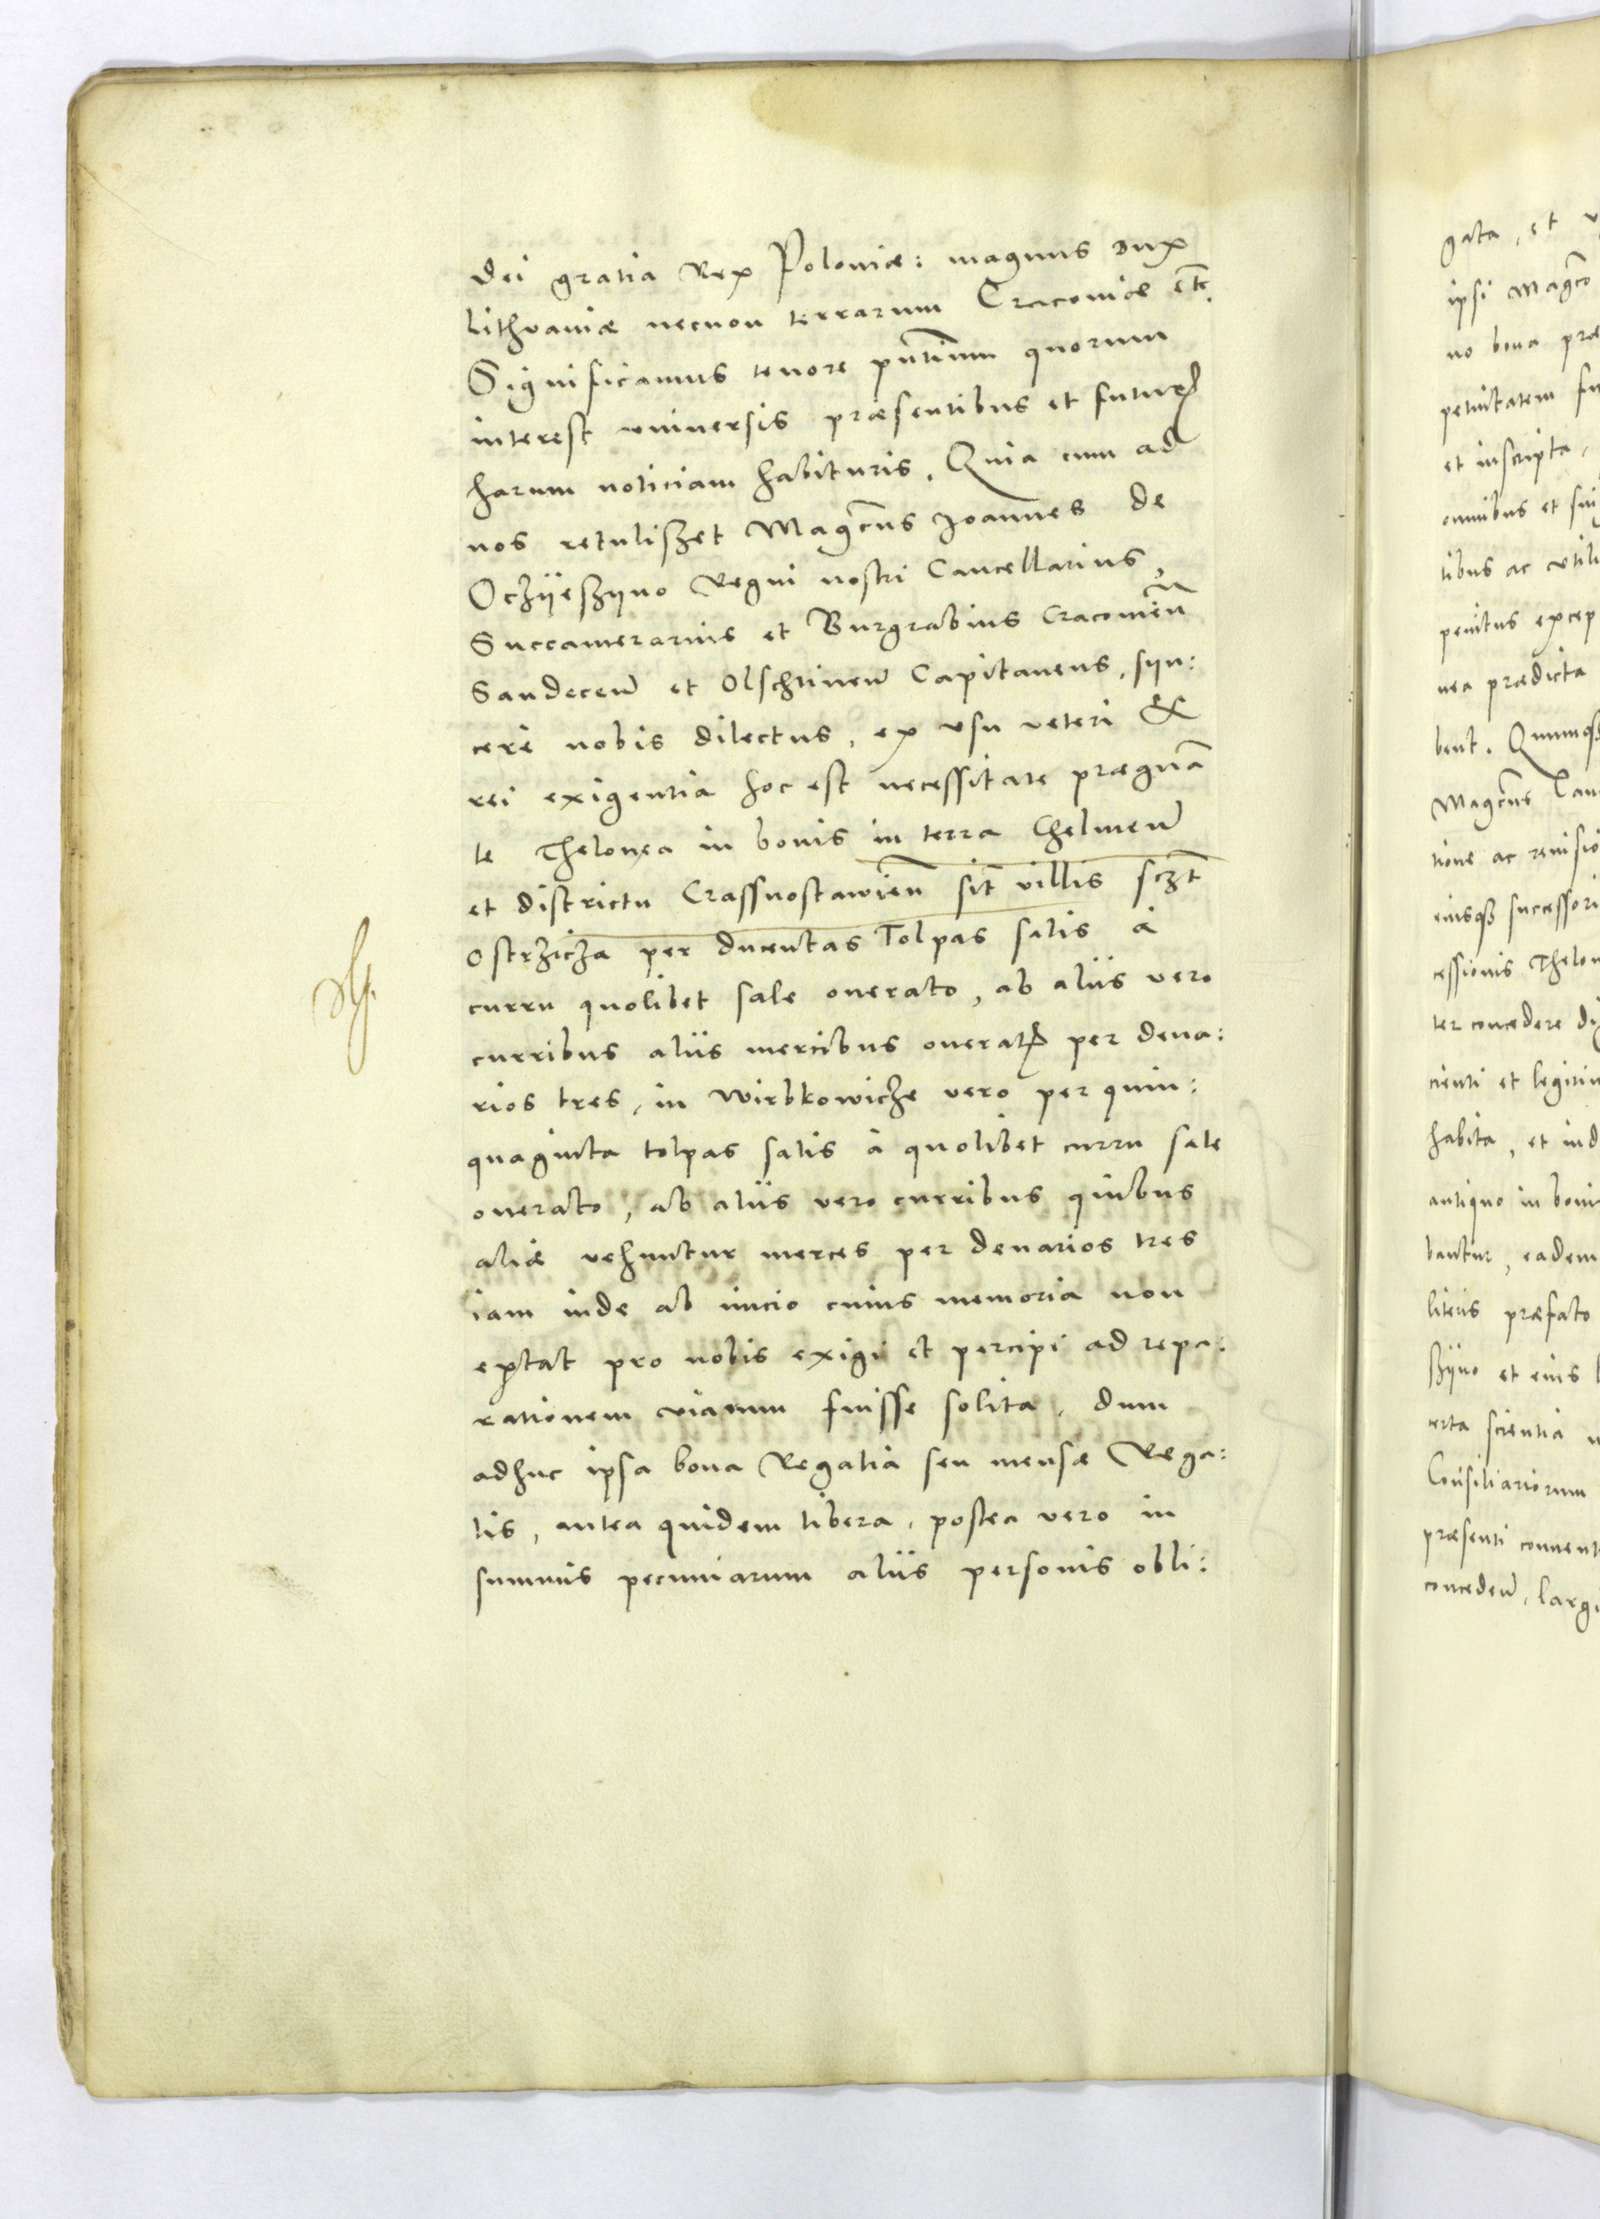 Dei gratia Rex Poloniæ: magnus Dux
Lithvaniæ necnon terrarum Cracoviæ etc.
Significamus tenore pntium quorum
interest universis præsentibus et futuris
harum noticiam habituris. Quia cum ad
nos retuliszet Magcus Joannes de
Oczÿeszyno Regni nostri Cancellarius,
Succamerarius et Burgrabius Cracovien
Sandecen et Olschtinen Capitaneus, syn:
cere nobis dilectus, ex vsu veteri &
rei exigentia hoc est necessitate prægna
te Thelonea in bonis in terra Chelmen
et districtu Crassnostawien sit villis sczt
Ostrzicza per ducentas Tolpas salis à
curru quolibet sale onerato, ab alijs vero
curribus alijs mercibus oneratis per dena:
rios tres, in Wirbkowicze vero per quin:
quaginta tolpas salis à quolibet curru sale
onerato, ab alijs vero curribus quibus
aliæ vehuntur merces per denarios tres
iam inde ab inicio cuius memoria non
extat pro nobis exigi et percipi ad repa:
rationem viarum fuisse solita, dum
adhuc ipsa bona Regalia seu mensæ Rega:
lis, antea quidem libera, postea vero in
summis pecuniarum alijs personis obli:
gata, et
ipsi Magco
no bona præ
petuitatem
et inscripta,
omnibus et
tibus ac vtili
penitus excep
nea prædicta
bent. Quumqз
Magcus Can
tione ac reuisio
eiusqз successori
cessionis Thelon
ter concedere di
cienti et legitim
habita, et ind
antiquo in boni
bantur, eadem
literis præfato
szÿno et eius
certa scientia
Consiliariorum
præsenti conuent
conceden, largi